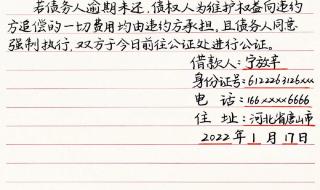 若债务人逾期未还，债权人为维护权益向违约
方追偿的一切费用均由违约方承担，且债务人同意
强制执行，双方于今日前往公证处进行公证。
借款人：宁放
身份证号：6122263126xxx
电 话：166xxxx6666
住 址：河北省唐山市
2022年1月17日